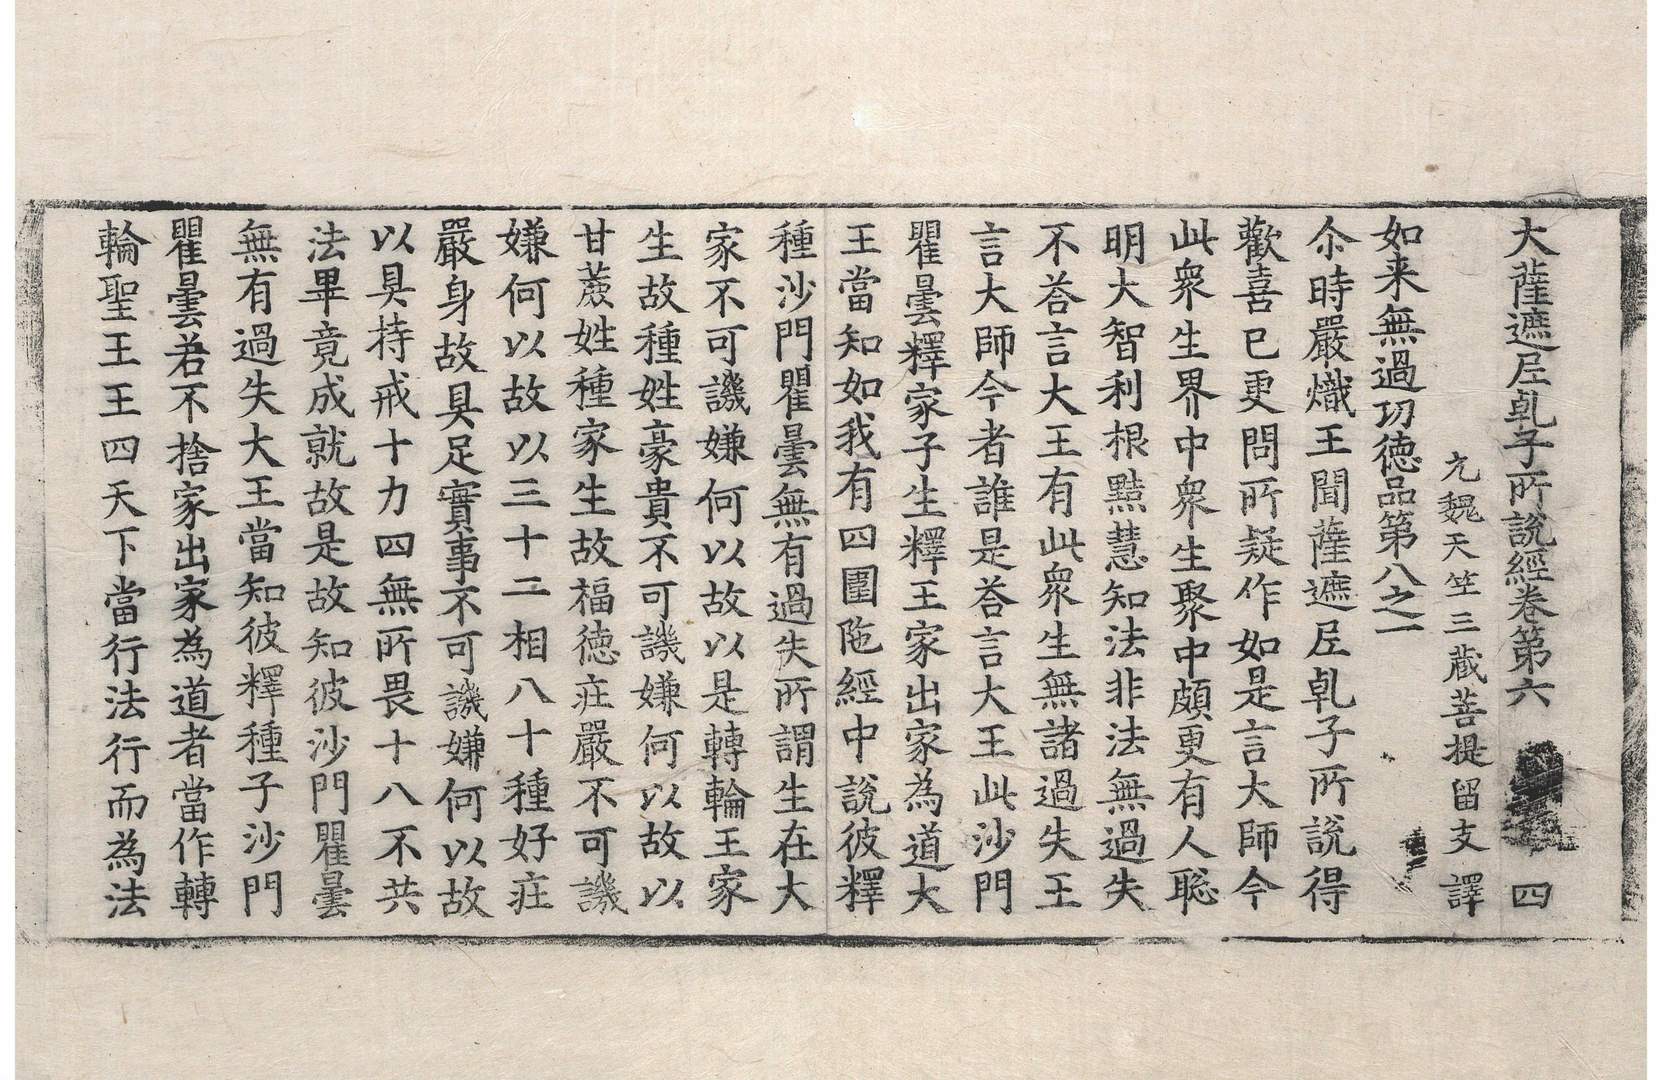 大薩遮尼乹子所說經卷第六 四
元魏天竺三藏菩提留支 譯
如来無過功德品第八之一
尒時嚴熾王聞薩遮尼乹子所說得
歡喜已更問所疑作如是言大師今
此衆生界中衆生聚中頗更有人聡
明大智利根黠慧知法非法無過失
不荅言大王有此衆生無諸過失王
言大師今者誰是荅言大王此沙門
瞿曇釋家子生釋王家出家為道大
王當知如我有四圍陁經中說彼釋
種沙門瞿曇無有過失所謂生在大
家不可譏嫌何以故以是轉輪王家
生故種姓豪貴不可譏嫌何以故以
甘蔗姓種家生故福德莊嚴不可譏
嫌何以故以三十二相八十種好莊
嚴身故具足實事不可譏嫌何以故
以具持戒十力四無所畏十八不共
法畢竟成就故是故知彼沙門瞿曇
無有過失大王當知彼釋種子沙門
瞿曇若不捨家出家為道者當作轉
輪聖王王四天下當行法行而為法